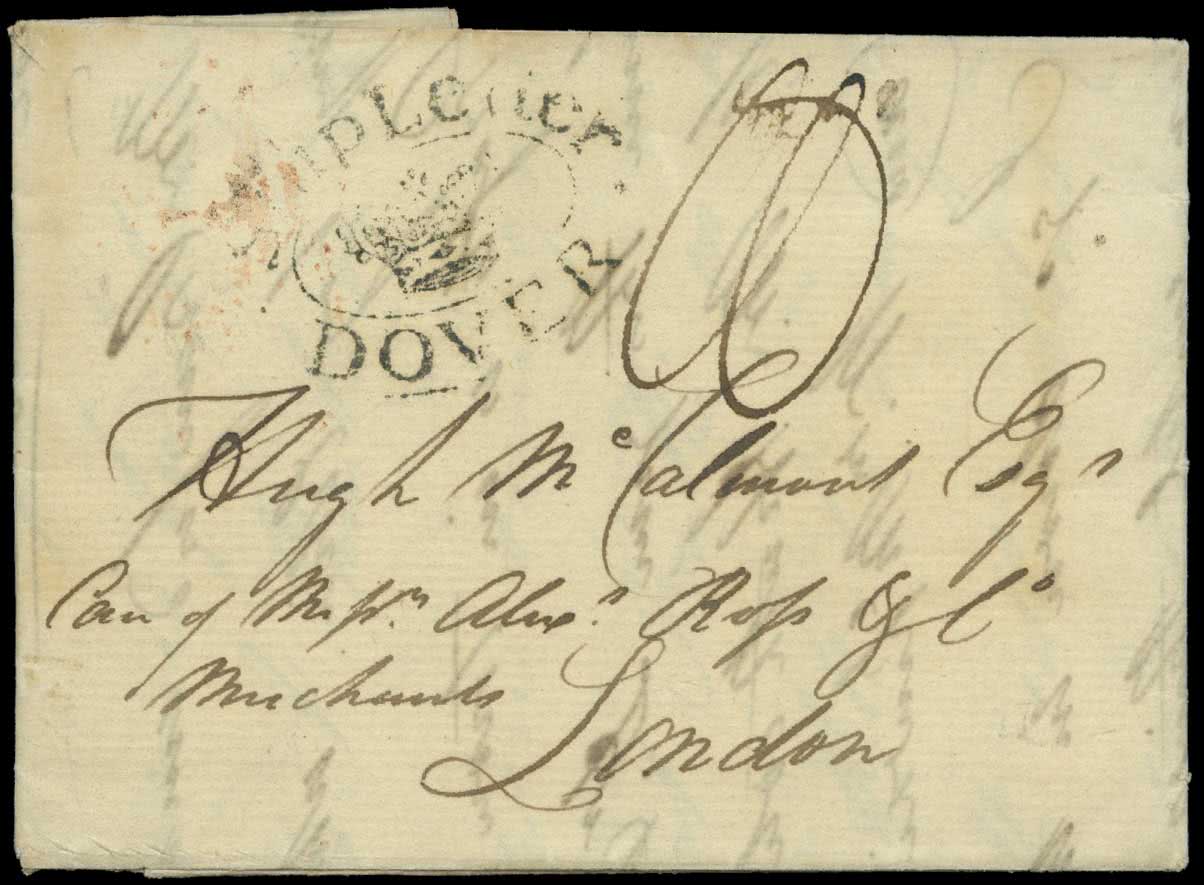 Ship Letter
DOVER
Hugh Mc Calmont Esqr
Care of Messrs. Alexr. Ross & Co
Merchants
London